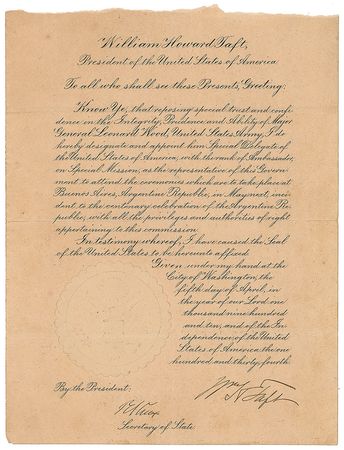 William Howard Taft,
President of the United States of America.
To all who shall see these Presents, Greeting:
Know Ye, that reposing special trust and confi-
dence in the Integrity, Prudence and Ability of Major
General Leonard Wood, United States Army, I do
hereby designate and appoint him Special Delegate of
the United States of America, with the rank of Ambassador,
on Special Mission, as the representative of this Govern-
ment to attend the ceremonies which are to take place at
Buenos Aires, Argentine Republic, in May next, inci-
dent to the centenary celebration of the Argentine Re-
public, with all the privileges and authorities of right
appertaining to this commission.
In testimony whereof, I have caused the Seal
of the United States to be hereunto affixed.
Given under my hand at the
City of Washington, the
fifth day of April, in
the year of our Lord one
thousand nine hundred
and ten, and of the In-
dependence of the United
States of America the one
hundred and thirty-fourth.
By the President:
Wm H Taft
P C Knox
Secretary of State.